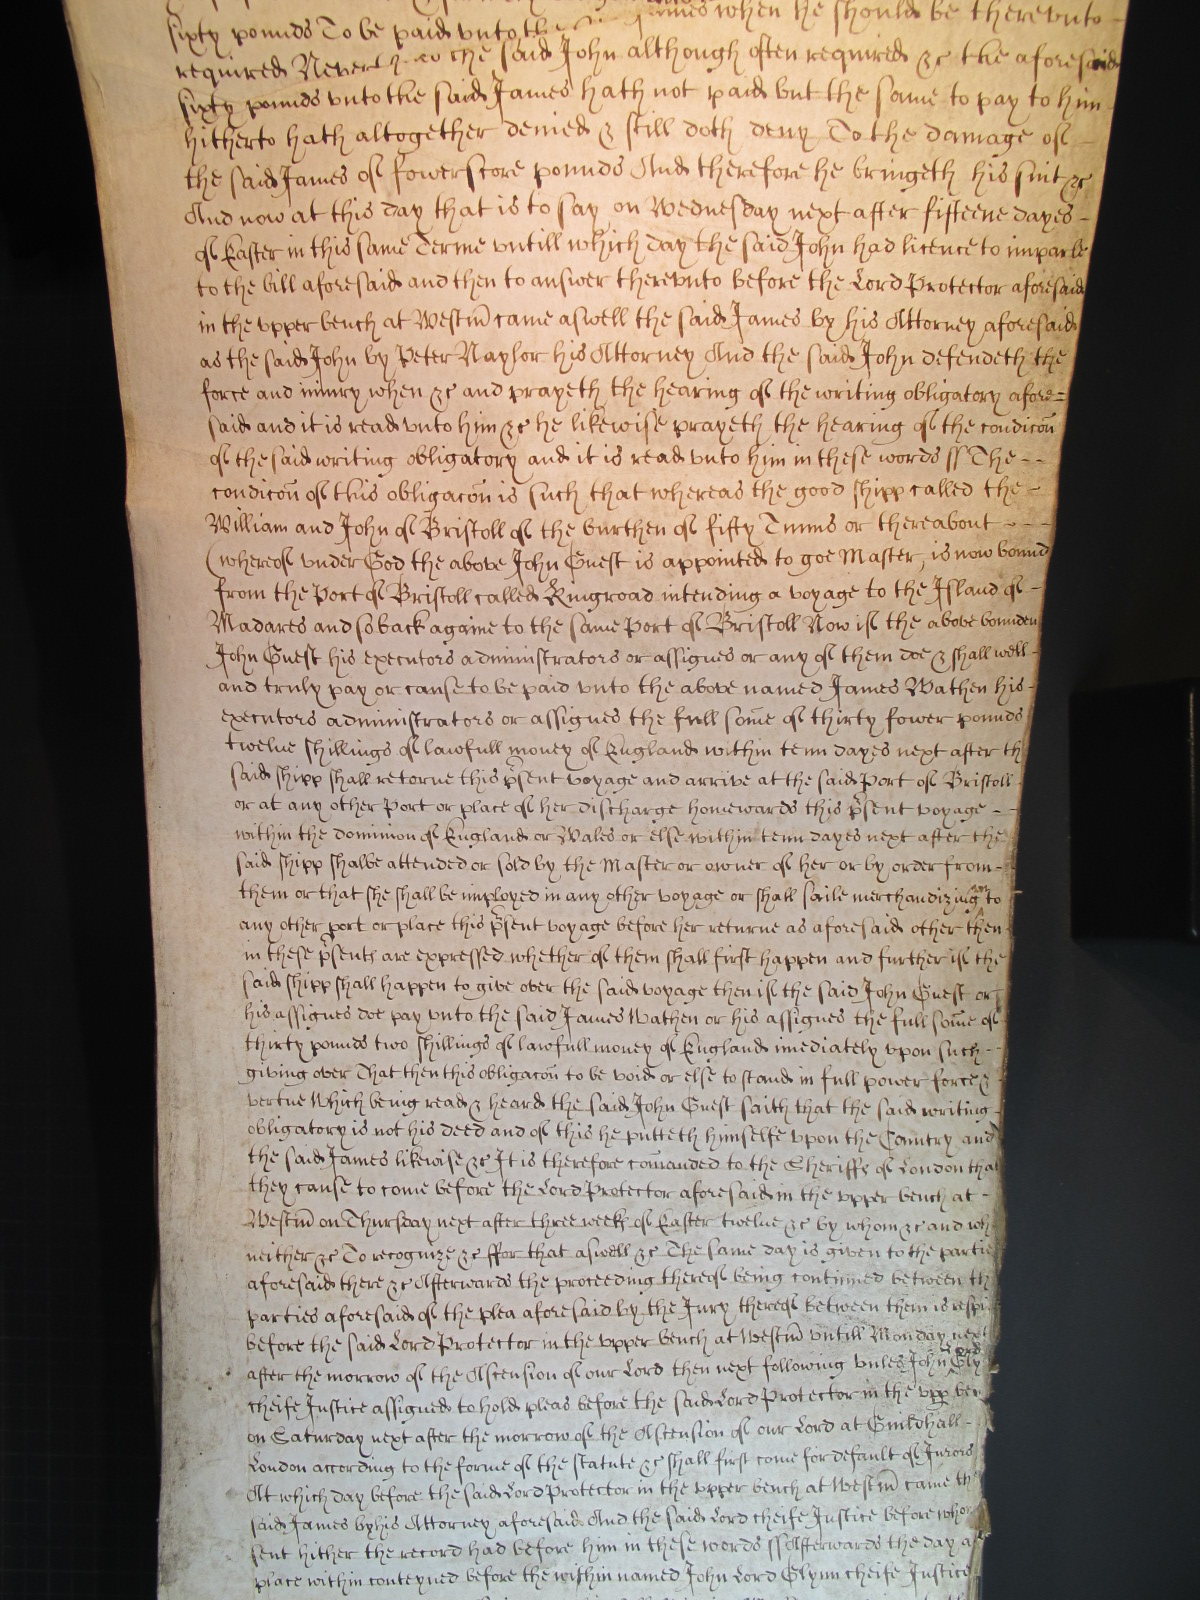 sixty pounds To be paid unto the James when he should be therevnto
required Neverthelesse the said John although often required &c the aforesaid
sixty pounds vnto the said James hath not paid but the same to pay to him
hitherto hath altogether denied & still doth deny To the damage of
the said James of fowerscore pounds And therefore he bringeth his suit &c
And now at this day that is to say on Wednesday next after fifteene dayes
of Easter in this same Terme vntill which day the said John had licence to imparle
to the bill aforesaid and then to answer therevnto before the Lord Protector aforesaid
in the vpper bench at Westm̄ came aswell the said James by his Attorney aforesaid
as the said John by Peter Naylor his Attorney And the said John defendeth the
force and iniury when &c and prayeth the hearing of the writing obligatory afore=
said and it is read vnto him &c he likewise prayeth the hearing of the condicōn
of the said writing obligatory and it is read vnto him in these words ss The
condicōn of this obligacōn is such that whereas the good shipp called the
William and John of Bristoll of the burthen of fifty Tunns or thereabout
(whereof vnder God the above John Guest is appointed to goe Master, is now bound
from the Port of Bristoll called Kingroad intending a voyage to the Island of
Madares and so back againe to the same Port of Bristoll Now if the above bounden
John Guest his executors administrators or assignes or any of them doe & shall well
and truly pay or cause to be paid vnto the above named James Wathen his
executors administrators or assignes the full som̄e of thirty fower pounds
twelve shillings of lawfull money of England within tenn dayes next after th
said shipp shall retorne this p̄sent voyage and arrive at the said Port of Bristoll
or at any other Port or place of her discharge homewards this p̄sent voyage
within the dominion of England or Wales or else within tenn dayes next after the
said shipp shalbe attended or sold by the Master or owner of her or by order from
them or that she shall be imployed in any other voyage or shall saile merchandizing to
any other port or place this p̄sent voyage before her returne as aforesaid other then
in these p̄sents are expressed whether of them shall first happen and further if the
said shipp shall happen to give over the said voyage then if the said John Guest or
his assignes doe pay vnto the said James Wathen or his assignes the full som̄e of
thirty pounds two shillings of lawfull money of England imediately vpon such
giving over That then this obligacōn to be void or else to stand in full power force &
vertue Which being read & heard the said John Guest saith that the said writing
obligatory is not his deed and of this he putteth himselfe vpon the Country and
the said James likewise &c It is therefore com̄anded to the Sheriffs of London that
they cause to come before the Lord Protector aforesaid in the vpper bench at
Westm̄ on Thursday next after three weeks of Easter twelve &c by whom &c and wh
neither &c To recognize &c ffor that aswell &c The same day is given to the partie
aforesaid there &c Afterwards the proceeding thereof being continued between th
parties aforesaid of the plea aforesaid by the Jury thereof between them is respi
before the said Lord Protector in the vpper bench at Westm̄ vntill Monday next
after the morrow of the Ascension of our Lord then next following vnles John Lord Gly
cheife Justice assigned to hold pleas before the said Lord Protector in the vpp ben
on Saturday next after the morrow of the Ascension of our Lord at Guildhall
London according to the forme of the statute &c shall first come for default of Jurors
At which day before the said Lord Protector in the vpper bench at Westm̄ came th
said James by his Attorney aforesaid And the said Lord cheife Justice before whom
sent hither the record had before him in these words ss Afterwards the day a
place within conteyned before the within named John Lord Glynn cheife Justice